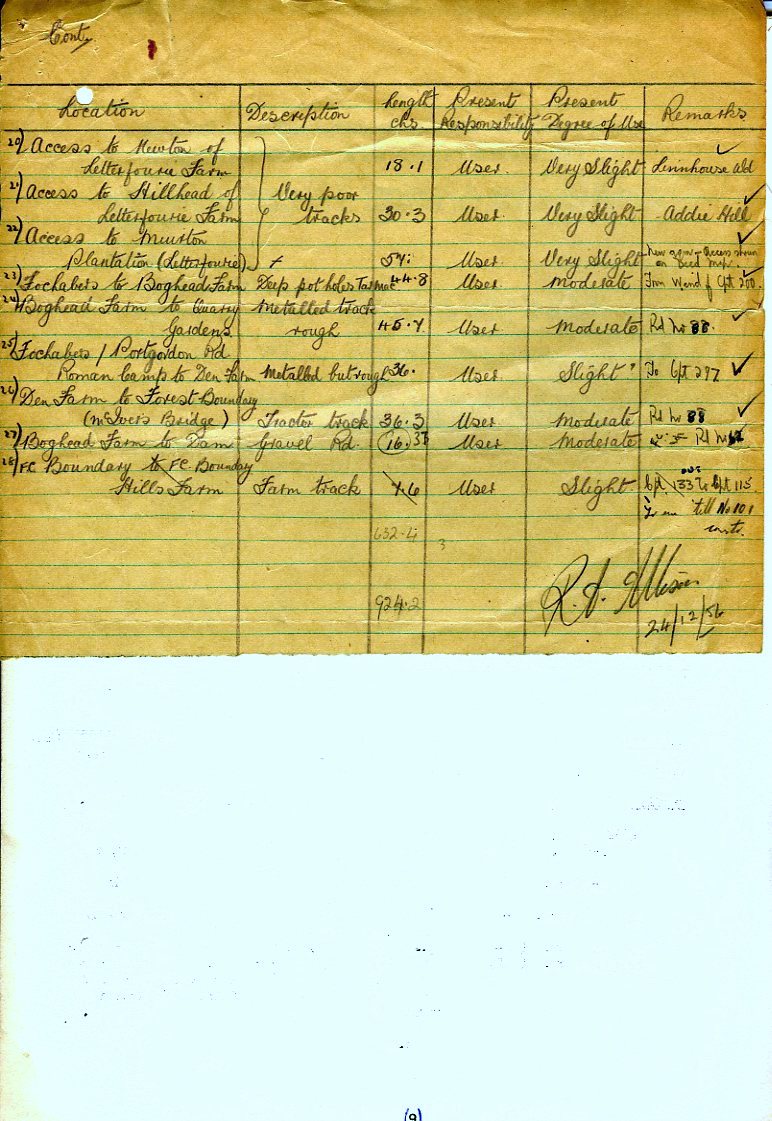 Cont,
Location Description Length chs. Present Responsibility Present Degree of Use Remarks
20) Access to Newton of
Letterfourie Farm 18.1 User Very Slight Linnhouse Wd
21) Access to Hillhead of Very poor
Letterfourie Farm tracks 30.3 User Very Slight Addie Hill
22) Access to Muirton
Plantation (Letterfourie) 57. User Very Slight New access shown on Deed Map.
23) Fochabers to Boghead Farm Deep pot holes Tarmac 44.8 User Moderate Cpt 200.
24) Boghead Farm to Quarry Metalled track
Gardens rough 45.7 User Moderate Rd No 88.
25) Fochabers / Portgordon Rd
Roman Camp to Den Farm Metalled but rough 36. User Slight? To Cpt 297
26) Den Farm to Forest Boundary
(McIver's Bridge) Tractor track 36.3 User Moderate Rd No 88
27) Boghead Farm to Dam Gravel Rd. 16.33 User Moderate Rd No
28) FC Boundary to FC. Bounday
Hills Farm Farm track 7.6 User Slight. Cpt. 133 to Cpt 115
till No 101
constr.
632.4 3
924.2
R.A. Allison
24/12/56
(9)